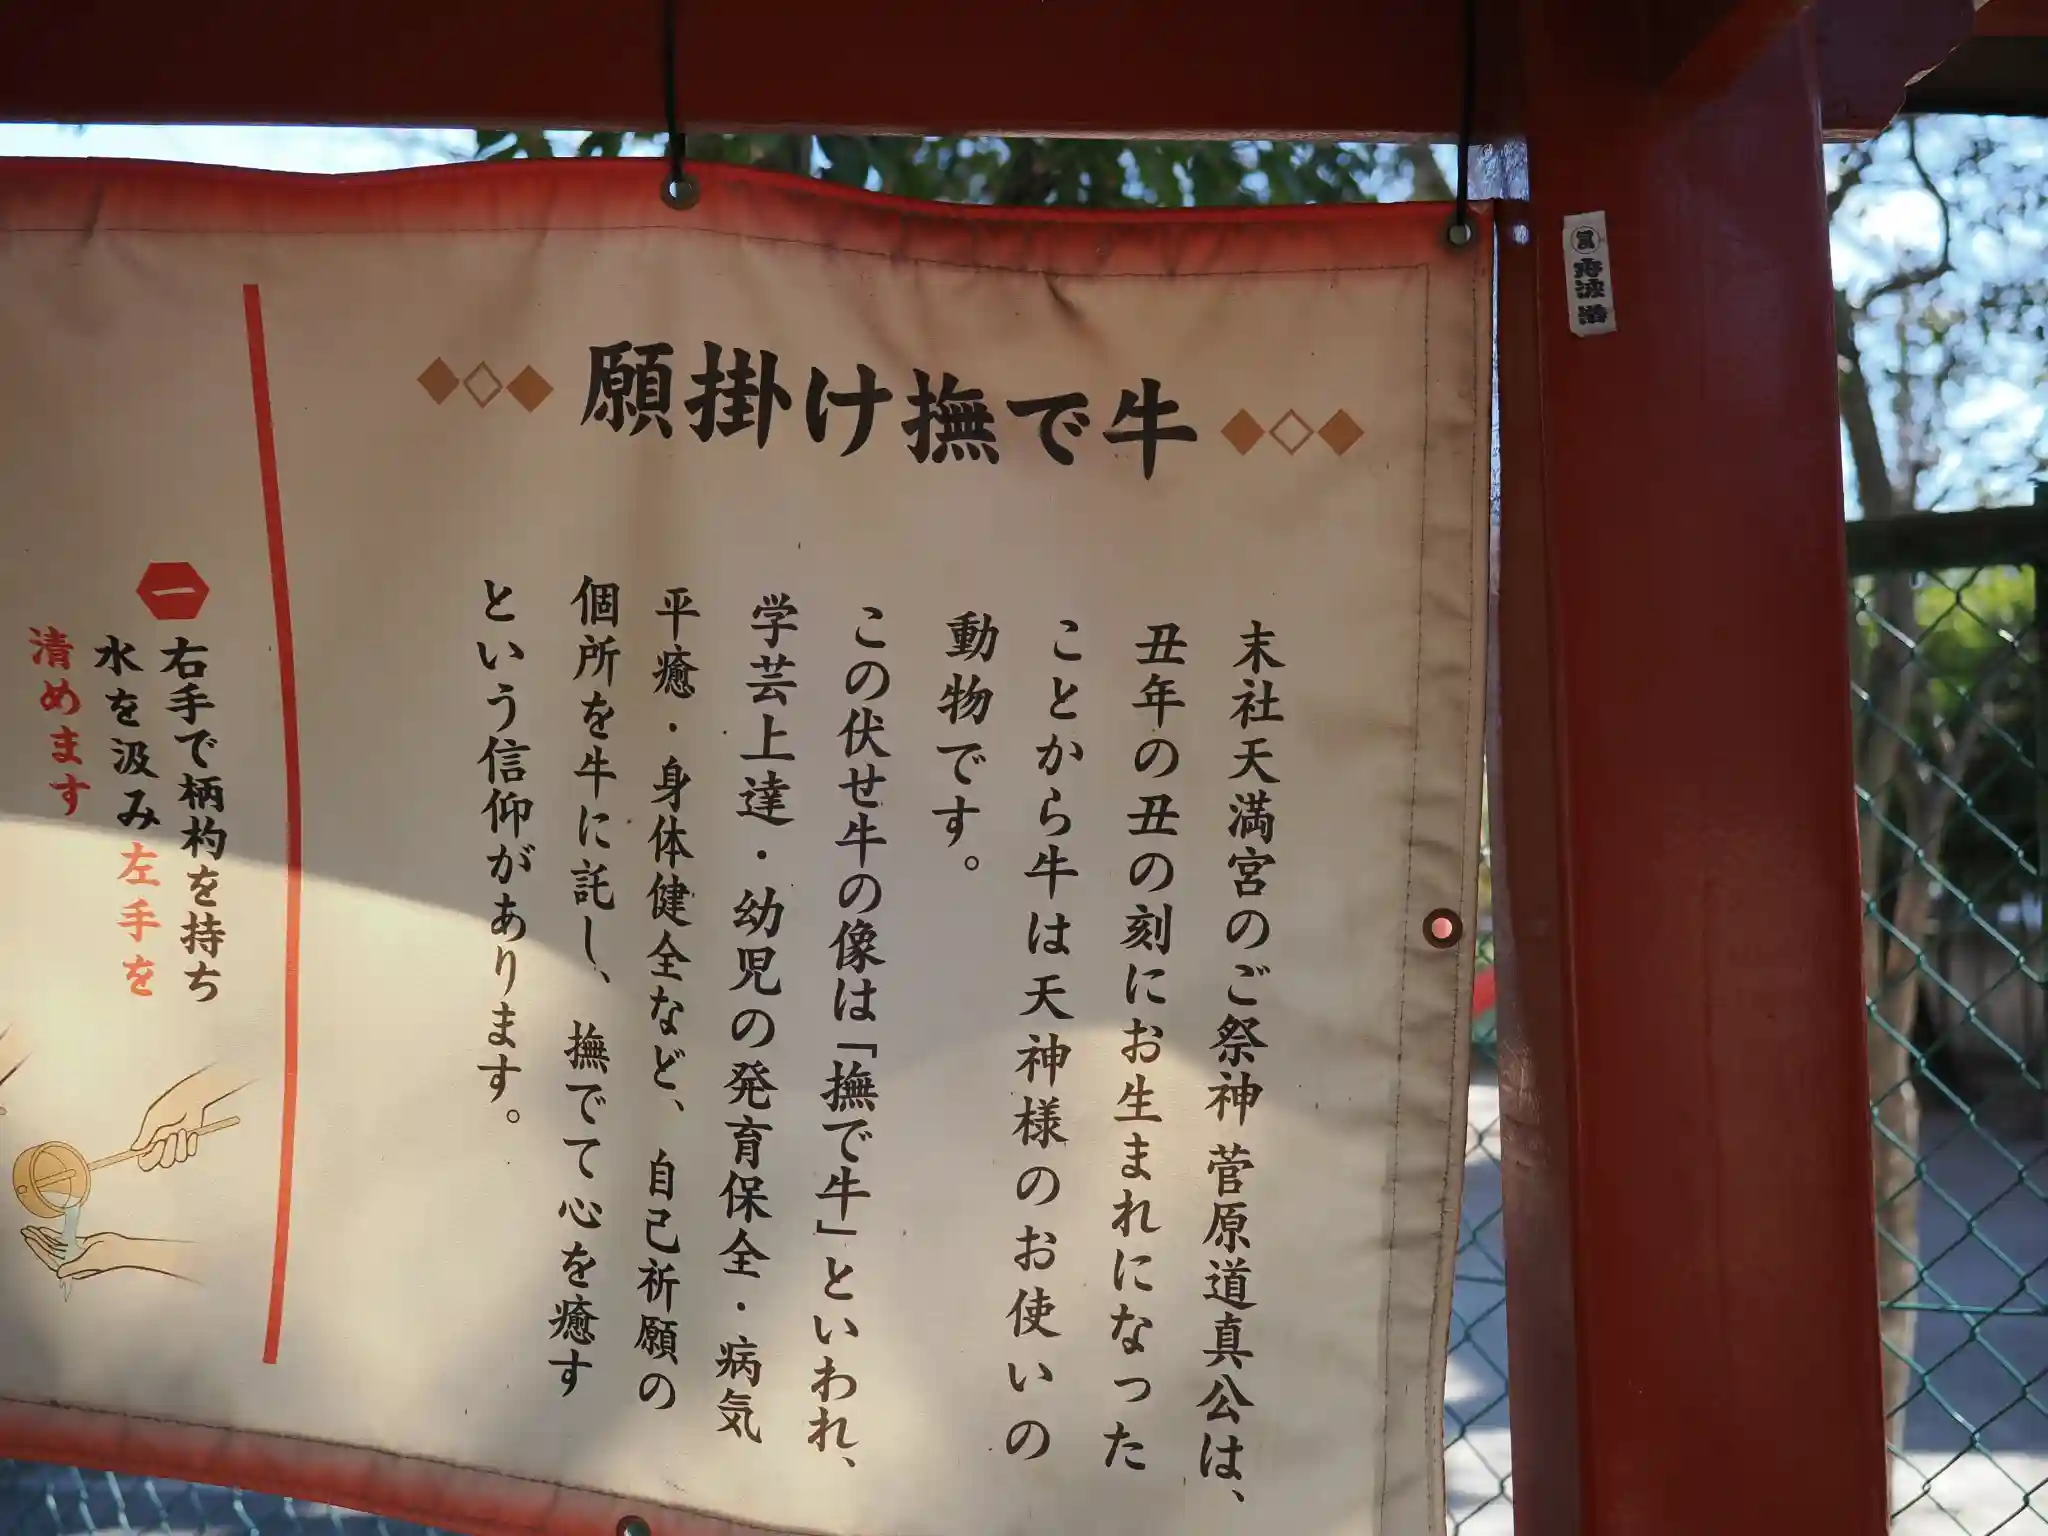 願掛け撫で牛
末社天満宮のご祭神 菅原道真公は、
丑年の丑の刻にお生まれになった
ことから牛は天神様のお使いの
動物です。
この伏せ牛の像は「撫で牛」といわれ、
学芸上達・幼児の発育保全・病気
平癒・身体健全など、自己祈願の
個所を牛に託し、撫でて心を癒す
という信仰があります。
一
右手で柄杓を持ち
水を汲み左手を
清めます